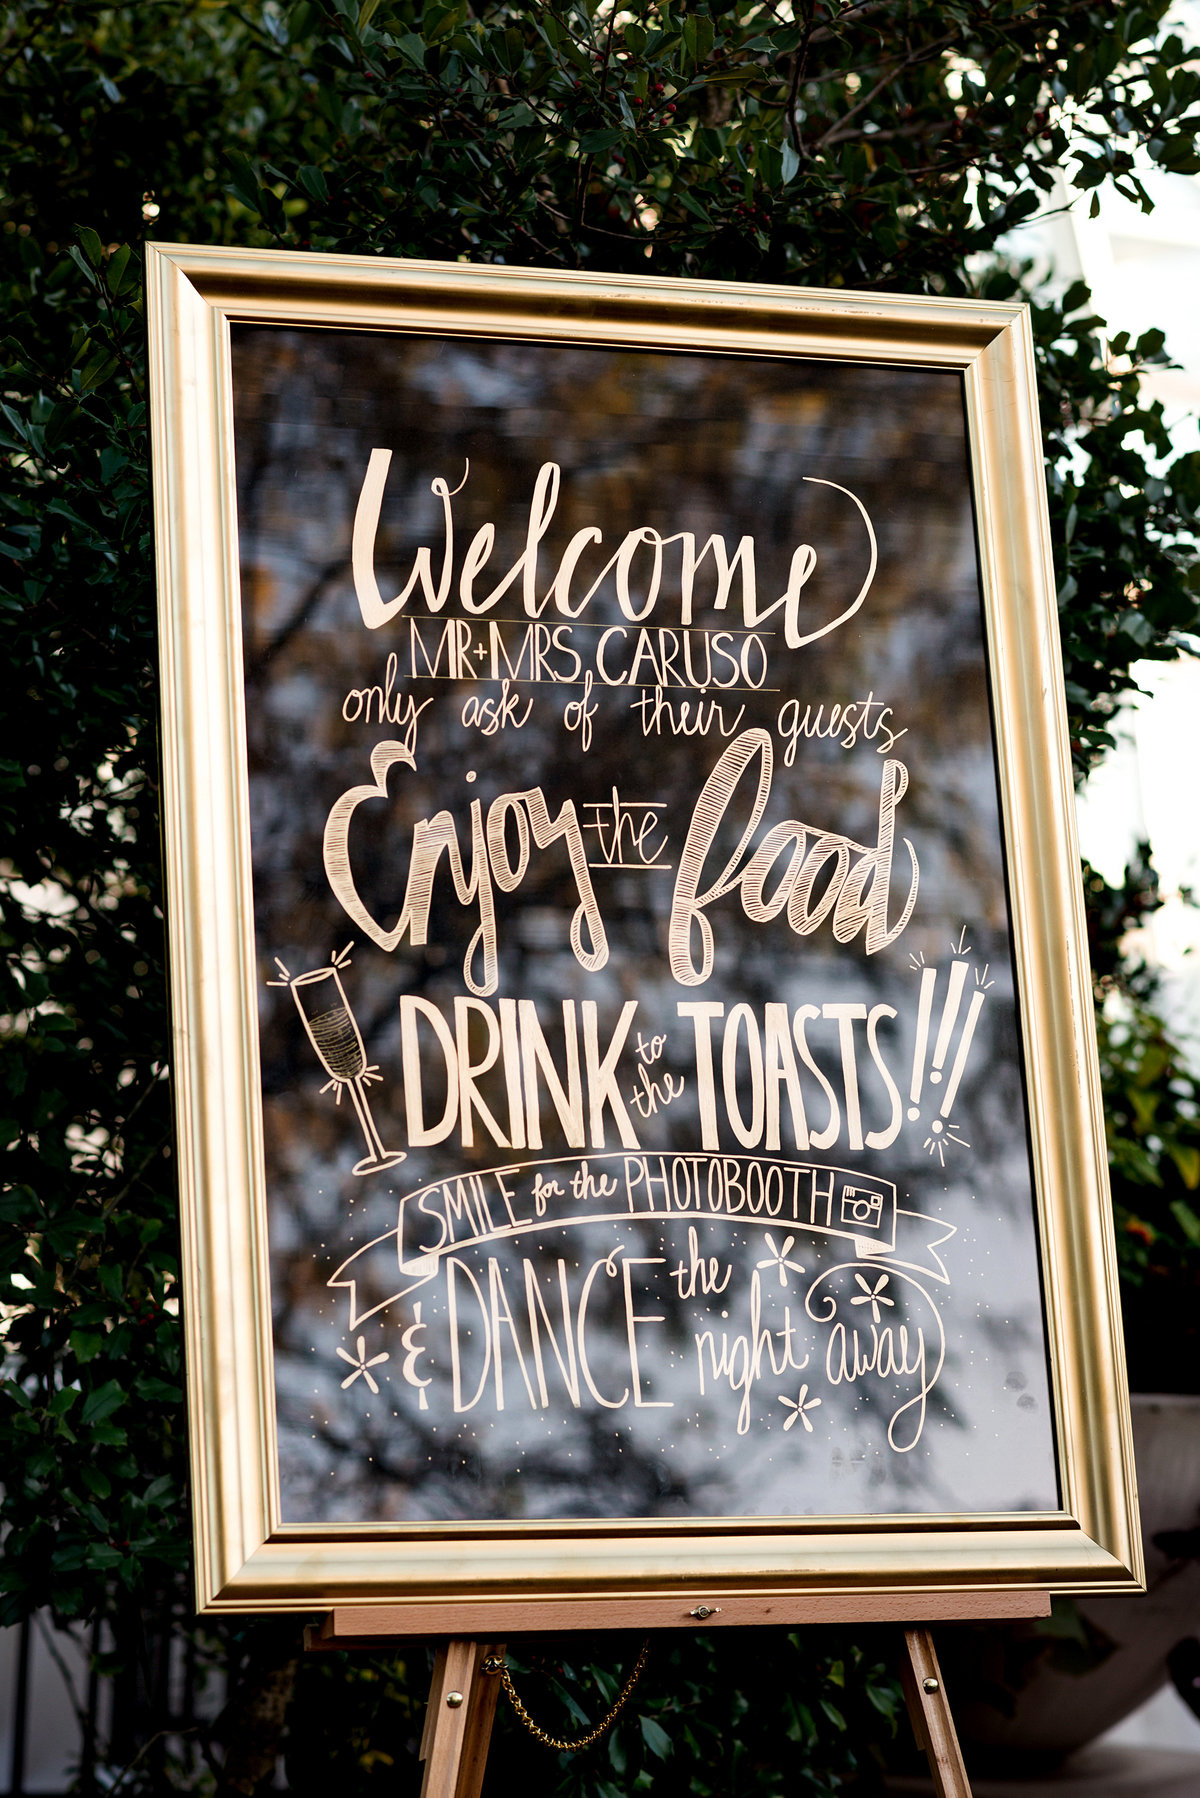 Welcome
MR+MRS. CARUSO
only ask of their guests
Enjoy the food
DRINK to the TOASTS!!!
SMILE for the PHOTOBOOTH
& DANCE the night away